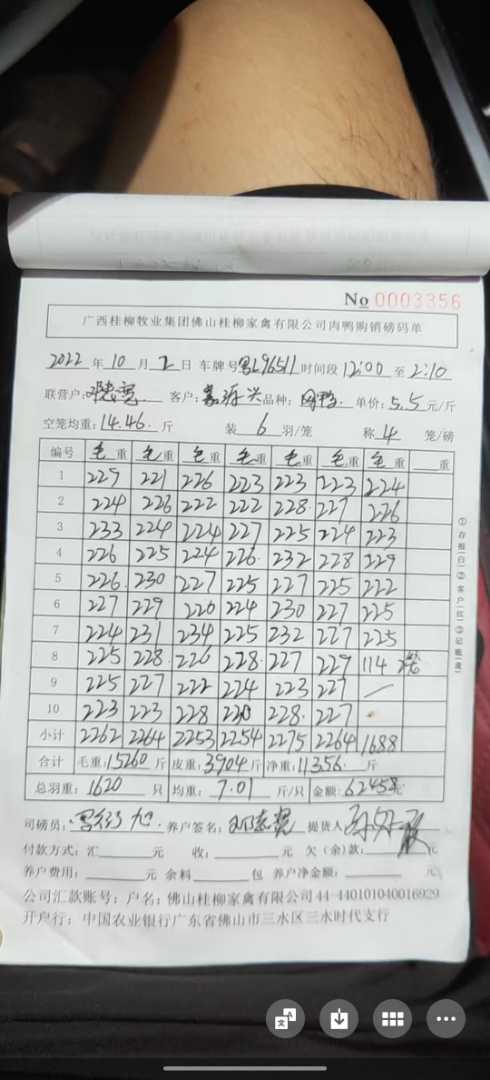 No 0003356
广西桂柳牧业集团佛山桂柳家禽有限公司肉鸭购销磅码单
2022 年 10 月 2 日 车牌号 L96511 时间段 12:00 至 2:10
联营户: 客户: 嘉源兴 品种: 单价: 5.5 元/斤
空笼均重: 14.46. 斤 装 6 羽/笼 称 4 笼/磅
编号 毛重 毛重 毛重 毛重 毛重 毛重 毛重 重
1 229 221 226 223 223 223 224
2 224 226 222 222 228 227 226
3 233 224 224 227 225 224 223
4 226 225 224 226 232 228 229
5 226 230 227 225 227 225 222
6 227 229 220 224 230 227 225
7 224 231 234 225 232 227 225
8 225 228 226 228 227 229 114
9 225 227 222 224 223 227 /
10 223 223 228 220 228 227
小计 2262 2264 2253 2254 2275 2264 1688
合计 毛重: 15260 斤 皮重: 3904 斤 净重: 11356. 斤
总羽重: 1620 只 均重: 7.01 斤/只 金额: 62458元
司磅员: 养户签名: 提货人
付款方式: 汇 元 收: 元 欠(余)款: 元
养户费用: 元 余料 包 养户净金额: 元
公司汇款账号: 户名: 佛山桂柳家禽有限公司44-440101040016929
开户行: 中国农业银行广东省佛山市三水区三水时代支行
①存根(白)②客户(红)③记账(黄)